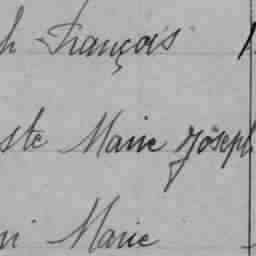 h François
ste Marie Joseph
ri Marie